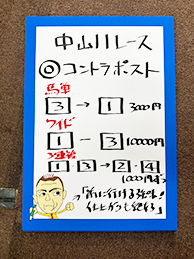 中山11レース
◎コントラポスト
馬単
3 → 1 300円
ワイド
1 - 3 10000円
3連単
1・3 → 2・4
1000円ずつ
「前に行ける強味!